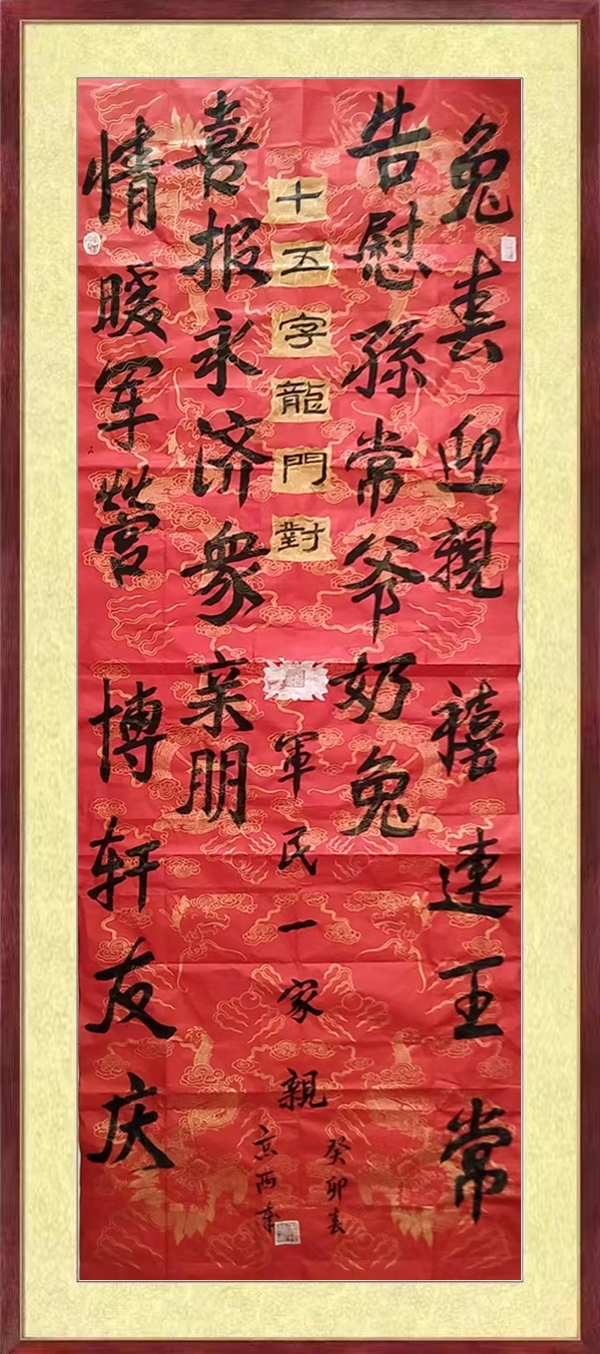 兔春迎親禧連王常
告慰孫常爷奶兔
十五字龍門對
軍民一家親
癸卯春
京西
喜报永济衆亲朋
情暖军營博轩友庆